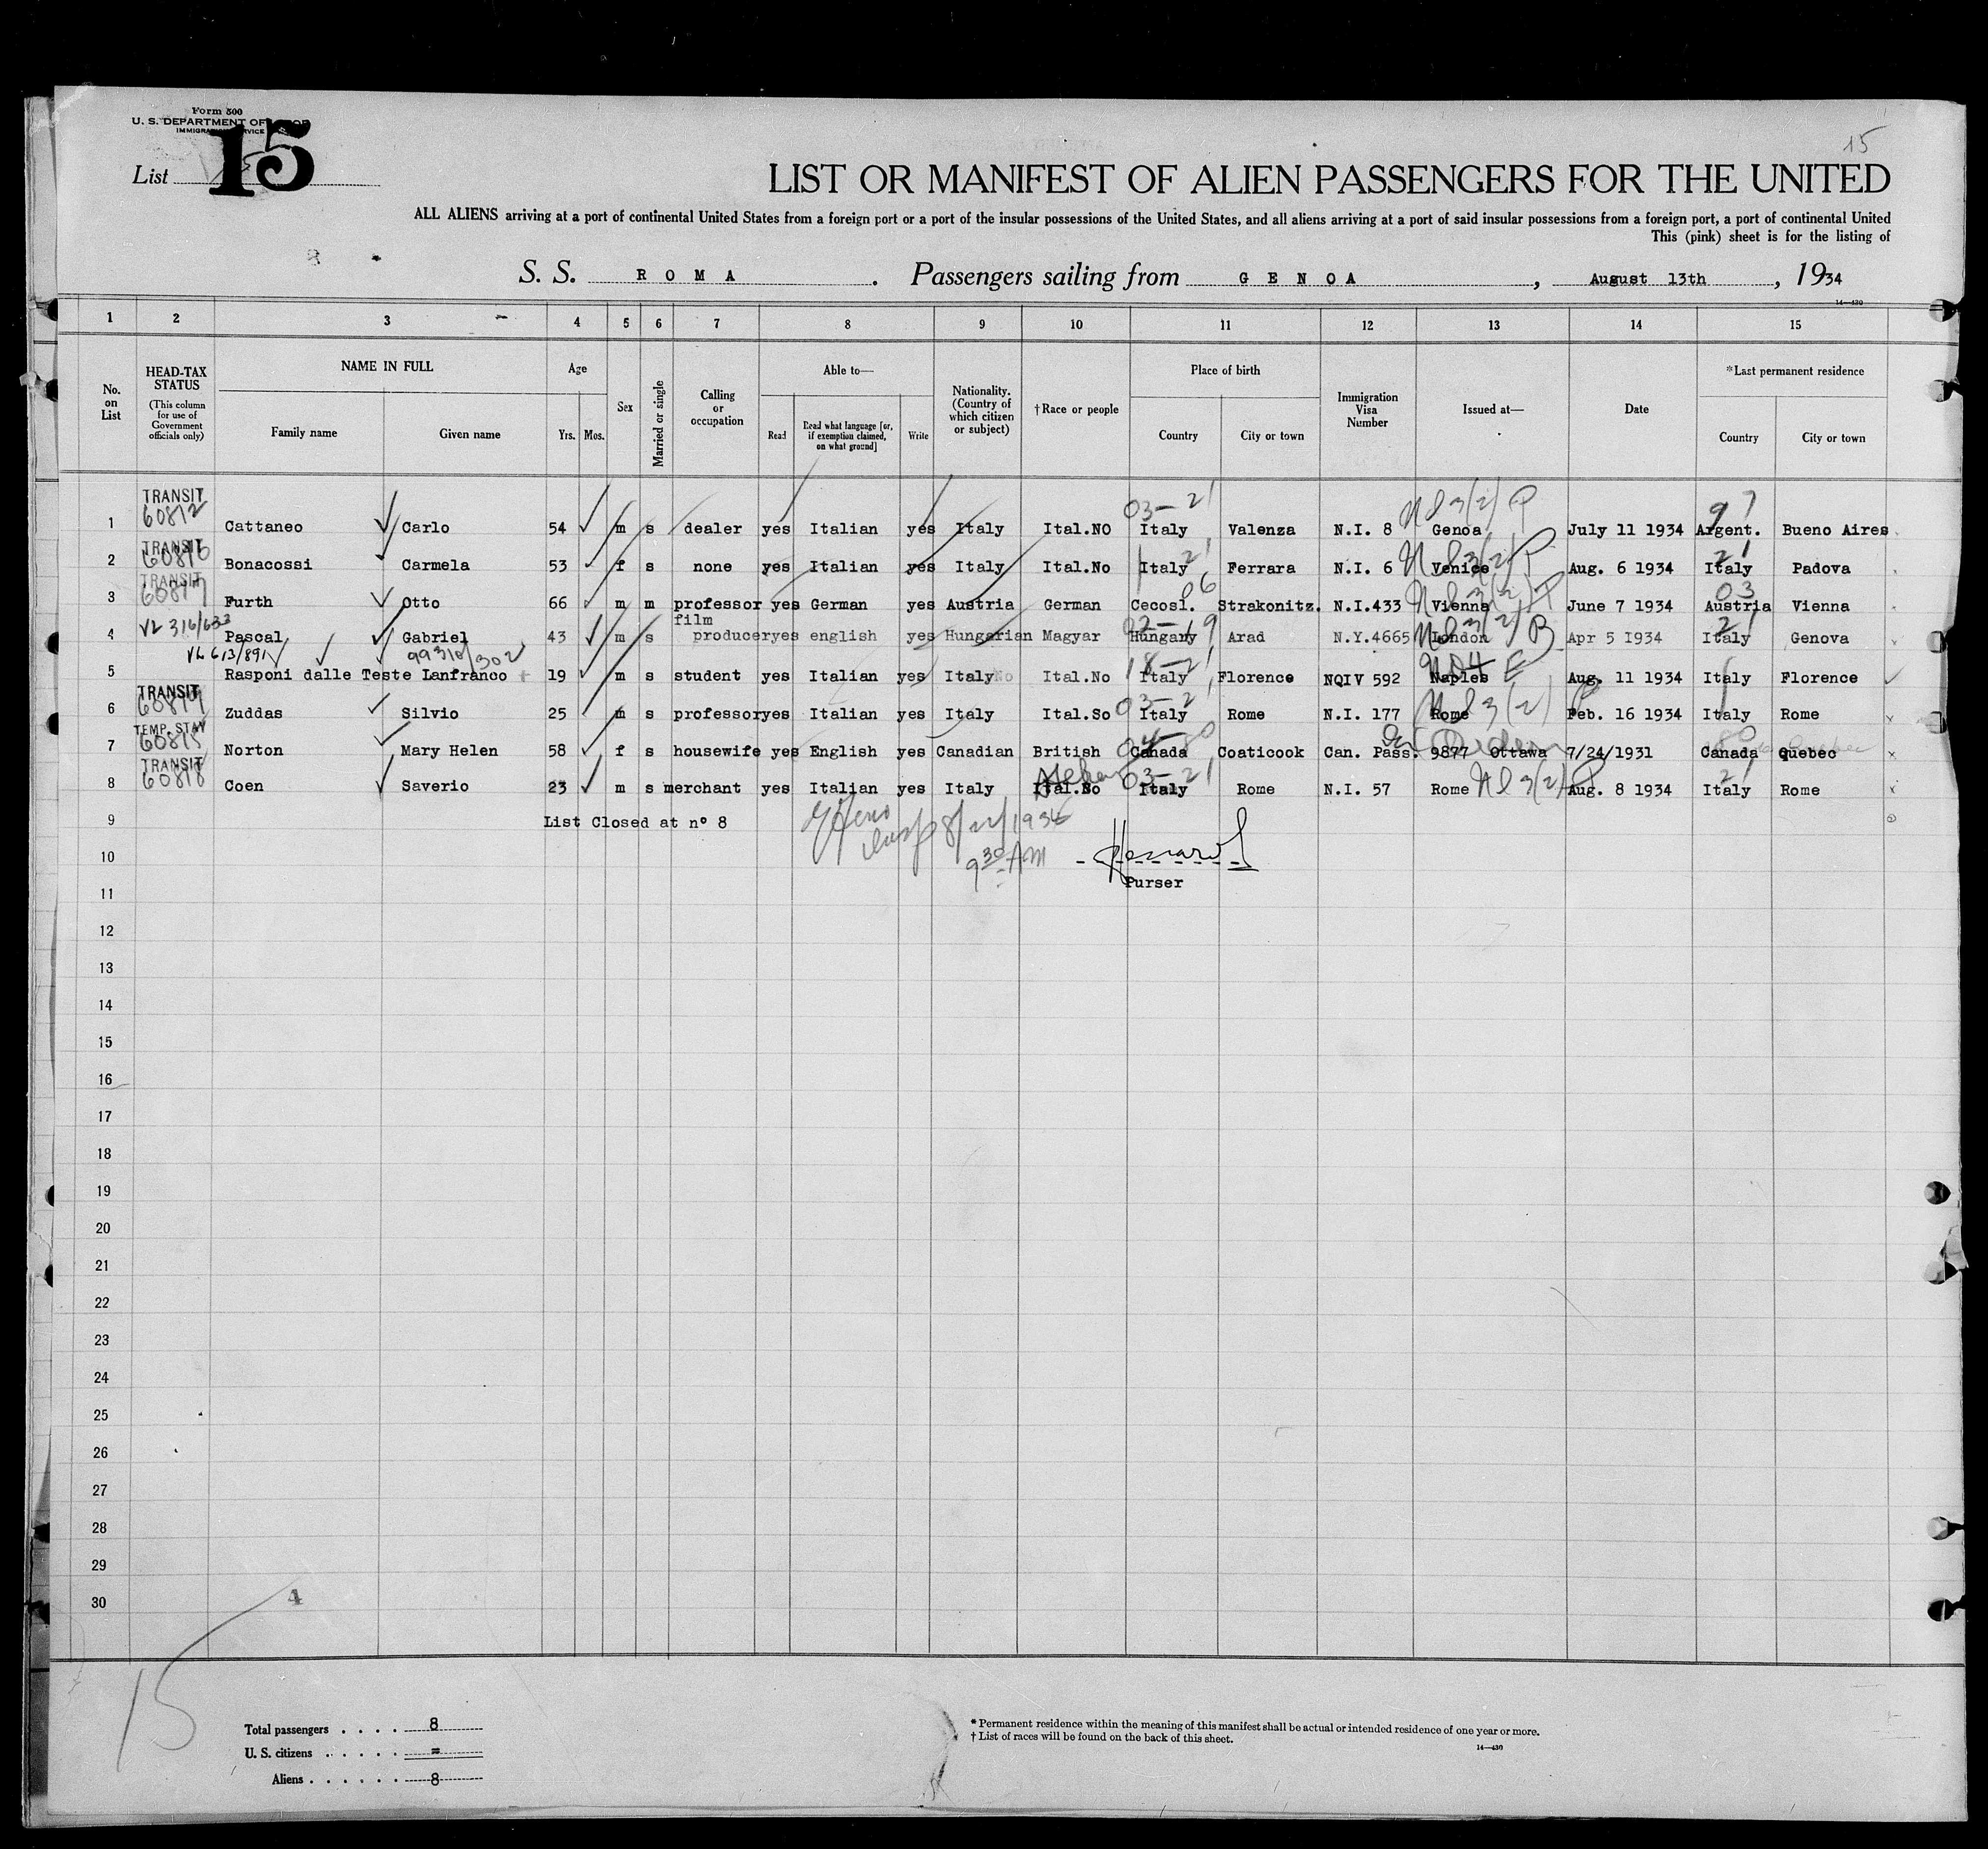 Form 500
U. S. DEPARTMENT OF
15
List
15
LIST OR MANIFEST OF ALIEN PASSENGERS FOR THE UNITED
ALL ALIENS arriving at a port of continental United States from a foreign port or a port of the insular possessions of the United States, and all aliens arriving at a port of said insular possessions from a foreign port, a port of continental United
This (pink) sheet is for the listing of
S. S. ROMA. Passengers sailing from GENOA, August 13th, 1934
14—430
1 2 3 4 5 6 7 8 9 10 11 12 13 14 15
No. on List
HEAD-TAX STATUS (This column for use of Government officials only)
NAME IN FULL Family name Given name
Age Yrs. Mos.
Sex
Married or single
Calling or occupation
Able to— Read Read what language [or, if exemption claimed, on what ground] Write
Nationality. (Country of which citizen or subject)
†Race or people
Place of birth Country City or town
Immigration Visa Number
Issued at—
Date
*Last permanent residence Country City or town
TRANSIT 60812 03—21
1 Cattaneo Carlo 54 m s dealer yes Italian yes Italy Ital.NO Italy Valenza N.I. 8 Genoa July 11 1934 Argent. Bueno Aires
TRANSIT 60816 21 21
2 Bonacossi Carmela 53 f s none yes Italian yes Italy Ital.No Italy Ferrara N.I. 6 Venice Aug. 6 1934 Italy Padova
TRANSIT 06 03
3 Furth Otto 66 m m professor yes German yes Austria German Cecosl. Strakonitz. N.I.433 Vienna June 7 1934 Austria Vienna
VL 316/633 film 21
4 Pascal Gabriel 43 m s producer yes english yes Hungarian Magyar Hungary Arad N.Y.4665 London Apr 5 1934 Italy Genova
VL 613/891 99310/302 18—21
5 Rasponi dalle Teste Lanfranco 19 m s student yes Italian yes Italy Ital.No Italy Florence NQIV 592 Naples Aug. 11 1934 Italy Florence
TRANSIT 03—21
6 Zuddas Silvio 25 m s professor yes Italian yes Italy Ital.So Italy Rome N.I. 177 Rome Feb. 16 1934 Italy Rome
TEMP. STAY 60815 80
7 Norton Mary Helen 58 f s housewife yes English yes Canadian British Canada Coaticook Can. Pass. 9877 Ottawa 7/24/1931 Canada Quebec
TRANSIT 60818 03—21 21
8 Coen Saverio 23 m s merchant yes Italian yes Italy Ital.So Italy Rome N.I. 57 Rome Aug. 8 1934 Italy Rome
9 List Closed at n° 8
8/22/1934
10 9 30 AM
11 Purser
12
13
14
15
16
17
18
19
20
21
22
23
24
25
26
27
28
29
30
4
15
Total passengers . . . . 8
U. S. citizens . . . . . =
Aliens . . . . . . 8
* Permanent residence within the meaning of this manifest shall be actual or intended residence of one year or more.
† List of races will be found on the back of this sheet.
14—430